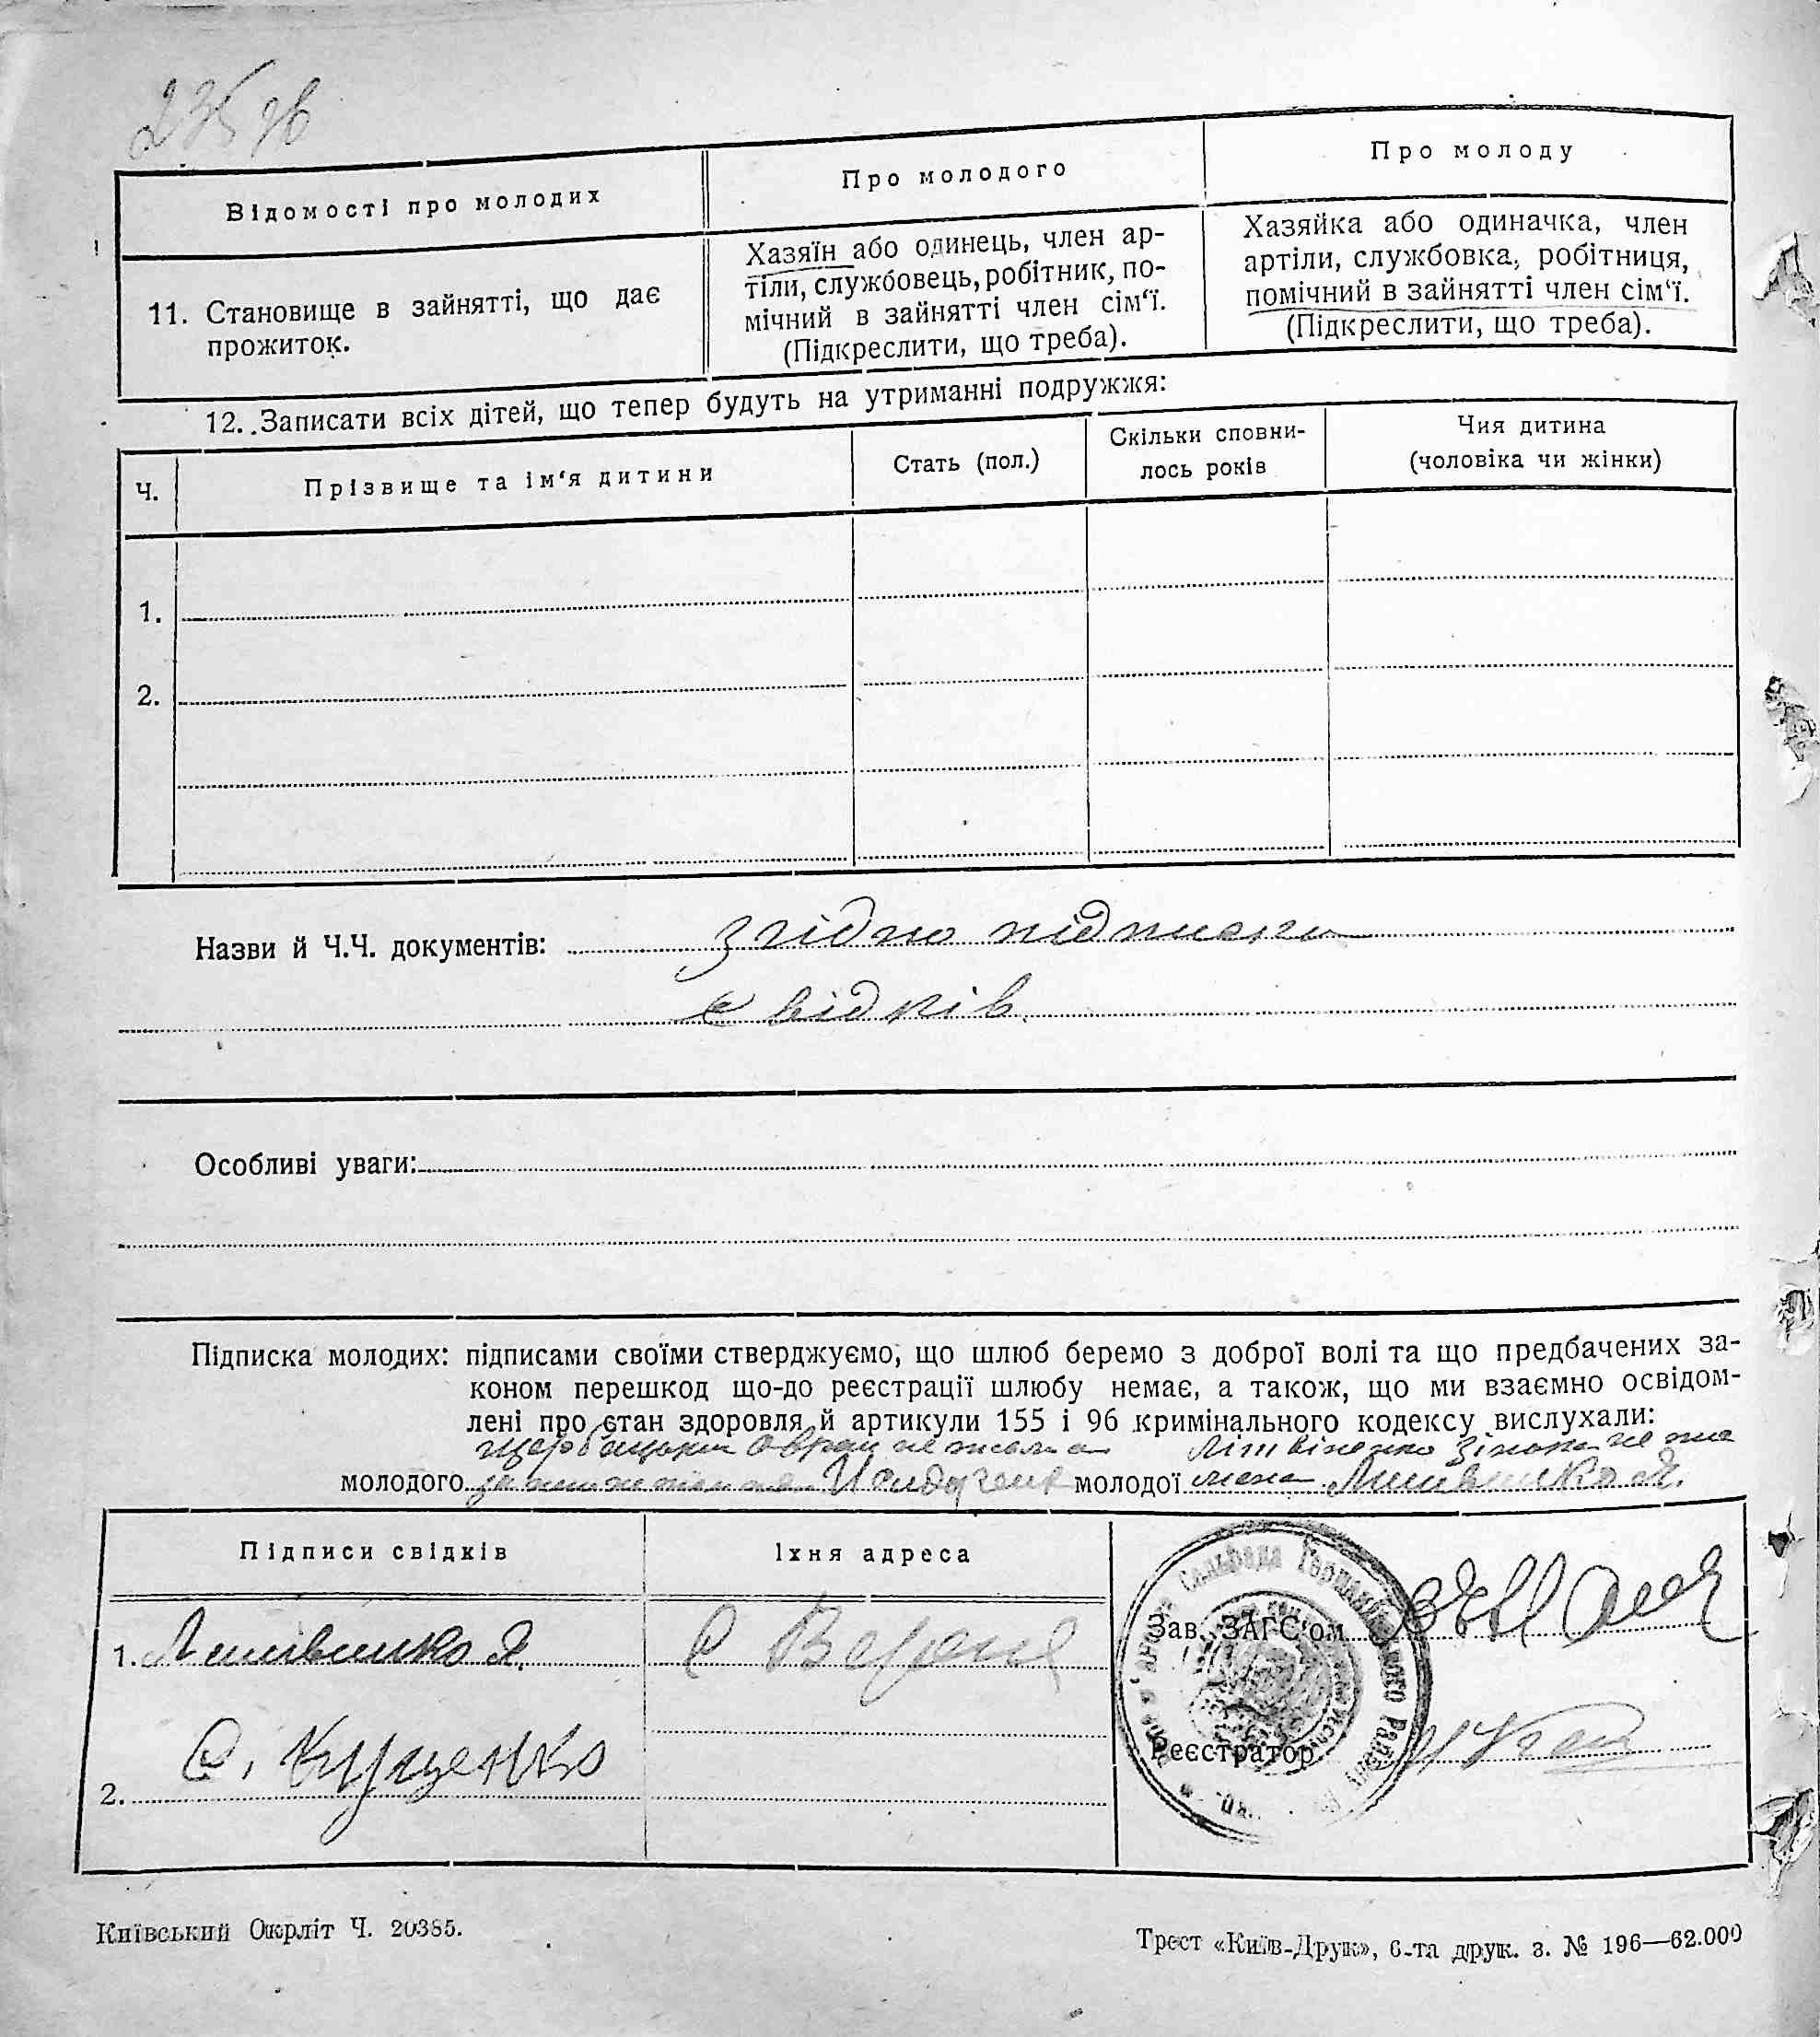 Відомості про молодих
Про молодого
Про молоду
11. Становище в зайнятті, що дає
прожиток.
Хазяїн або одинець, член ар-
тіли, службовець, робітник, по-
мічний в зайнятті член сім'ї.
(Підкреслити, що треба).
Хазяйка або одиначка, член
артіли, службовка, робітниця,
помічний в зайнятті член сім'ї.
(Підкреслити, що треба).
12. Записати всіх дітей, що тепер будуть на утриманні подружжя:
Ч.
Прізвище та ім'я дитини
Стать (пол.)
Скільки сповни-
лось років
Чия дитина
(чоловіка чи жінки)
1.
2.
Назви й Ч.Ч. документів: згідно підписки
свідків.
Особливі уваги:
Підписка молодих: підписами своїми стверджуємо, що шлюб беремо з доброї волі та що предбачених за-
коном перешкод що-до реєстрації шлюбу немає, а також, що ми взаємно освідом-
лені про стан здоровля й артикули 155 і 96 кримінального кодексу вислухали:
молодого молодої
Підписи свідків
Їхня адреса
1.
С. Куценко
2.
Зав. ЗАГС'ом
Реєстратор
Київський Окрліт Ч. 20385.
Трест «Київ-Друк», 6-та друк. з. № 196—62.000